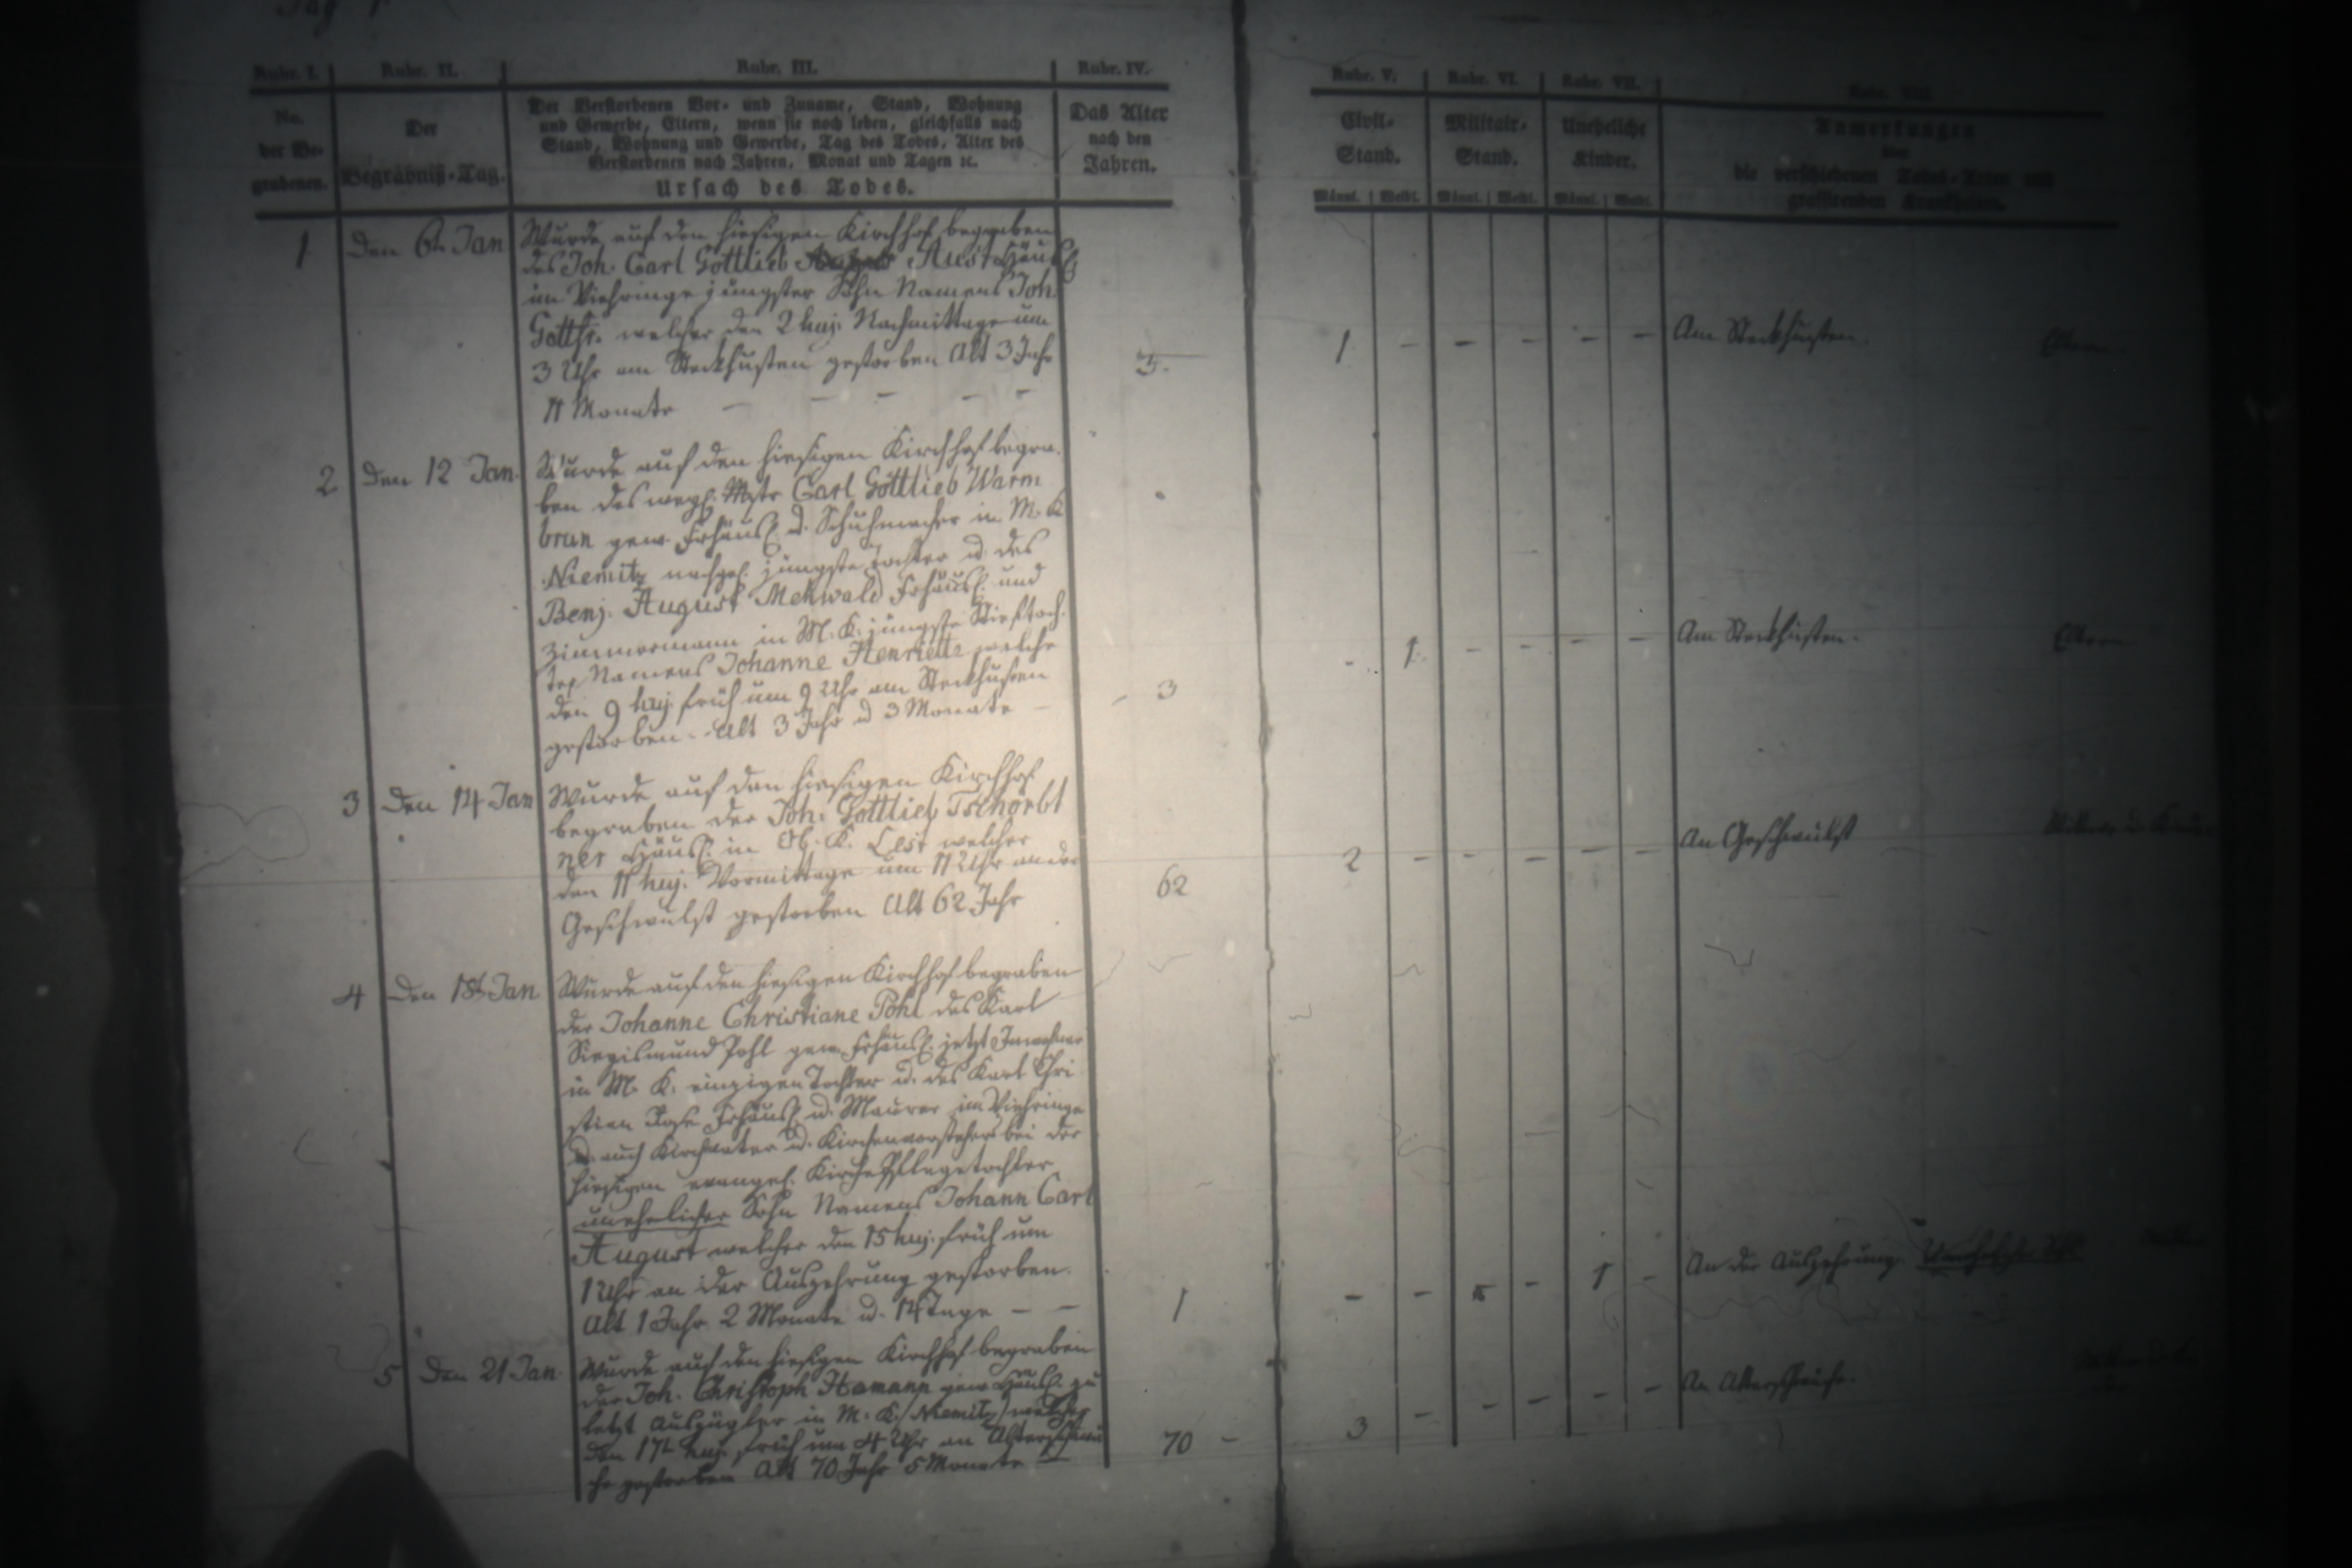 Pag. 1
Rubr. I.
No.
der Be-
grabenen.
Rubr. II.
Der
Begräbniß-Tag.
Rubr. III.
Der Verstorbenen Vor- und Zuname, Stand, Wohnung
und Gewerbe, Eltern, wenn sie noch leben, gleichfalls nach
Stand, Wohnung und Gewerbe, Tag des Todes, Alter des
Verstorbenen nach Jahren, Monat und Tagen ꝛc.
Ursach des Todes.
Rubr. IV.
Das Alter
nach den
Jahren.
Rubr. V.
Civil-
Stand.
Männl. Weibl.
Rubr. VI.
Militair-
Stand.
Männl. Weibl.
Rubr. VII.
Uneheliche
Kinder.
Männl. Weibl.
Rubr. VIII.
Anmerkungen
über
die verschiedenen Todes-Arten und
grassirenden Krankheiten.
1 Den 6ten Jan
Wurde auf den hiesigen Kirchhof begraben
des Joh. Carl Gottlieb Aust Häusl.
im Viehringe jüngster Sohn Namens Joh.
Gottfr. welcher den 2 huj. Nachmittage um
3 Uhr am Steckhusten gestorben Alt 3 Jahr
11 Monate - - - - -
3.
1 - - - - - Am Steckhusten. Eltern.
2 Den 12 Jan.
Wurde auf den hiesigen Kirchhof begra-
ben des weyl. Mstr Carl Gottlieb Warm
brun gew. Frhäusl. u. Schuhmacher in M. K
Niemitz nachgel. jüngste Tochter u. des
Benj. August Mehwald Frhäusl. und
Zimmermann in M. K. jüngste Stieftoch-
ter Namens Johanne Henriette welche
den 9 huj. früh um 9 Uhr am Steckhusten
gestorben. Alt 3 Jahr u 3 Monate -
- 3
- 1. - - - - Am Steckhusten. Eltern
3 Den 14 Jan
Wurde auf den hiesigen Kirchhof
begraben der Joh. Gottlieb Tschörbt
ner Häusl. in Ob. K. Lest welcher
den 11 huj. Vormittage um 11 Uhr an der
Geschwulst gestorben Alt 62 Jahr
62
2 - - - - - An Geschwulst
4 Den 18t Jan
Wurde auf den hiesigen Kirchhof begraben
der Johanne Christiane Pohl des Karl
Siegismund Pohl gew. Frhäusl. jetzt Inwohner
in M. K. einzigen Tochter u. des Karl Chri
stian Frhäusl. u. Maurer im Viehringe
u. auch Kirchvater u. Kirchenvorsteher bei der
hiesigen evangel. Kirche Pflegetochter
unehelicher Sohn Namens Johann Carl
August welcher den 15 huj. früh um
1 Uhr an der Auszehrung gestorben.
Alt 1 Jahr 2 Monate u. 14 Tage - -
1
- - - 1 - An der Auszehrung. Unehelicher
5 Den 21 Jan
Wurde auf den hiesigen Kirchhof begraben
der Joh. Christoph Hamann gew. Häusl. zu
letzt Auszügler in M. K. (Niemitz) welcher
den 17t huj. früh um 4 Uhr an Altersschwä
che gestorben Alt 70 Jahr 5 Monate -
70 -
3 - - - - - An Altersschwäche.